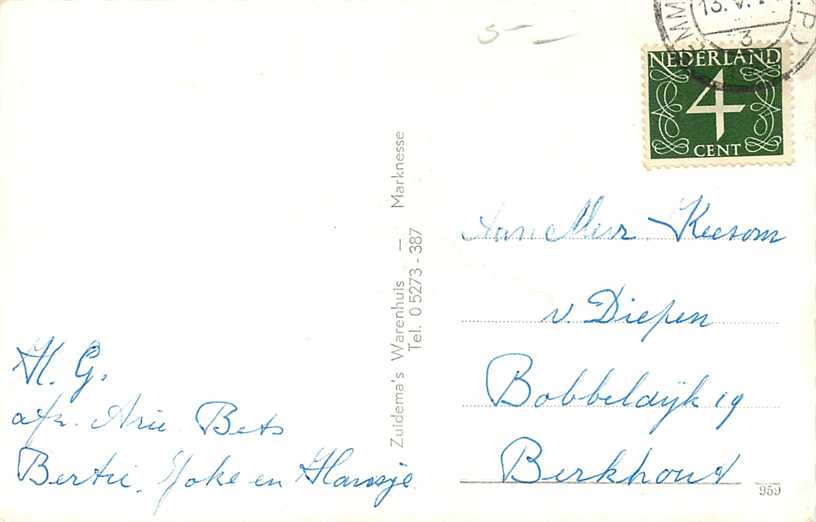 5-
13. V.
3
NEDERLAND
4
CENT
Zuidema's Warenhuis — Marknesse
Tel. 0 5273 - 387
Aan Mevr. Keesom
v. Diepen
Bobbeldijk 19
Berkhout
H. G.
afz. Arie Bets
Bertie, Joke en Hansje
959